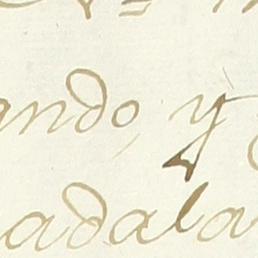 ando, y
adala